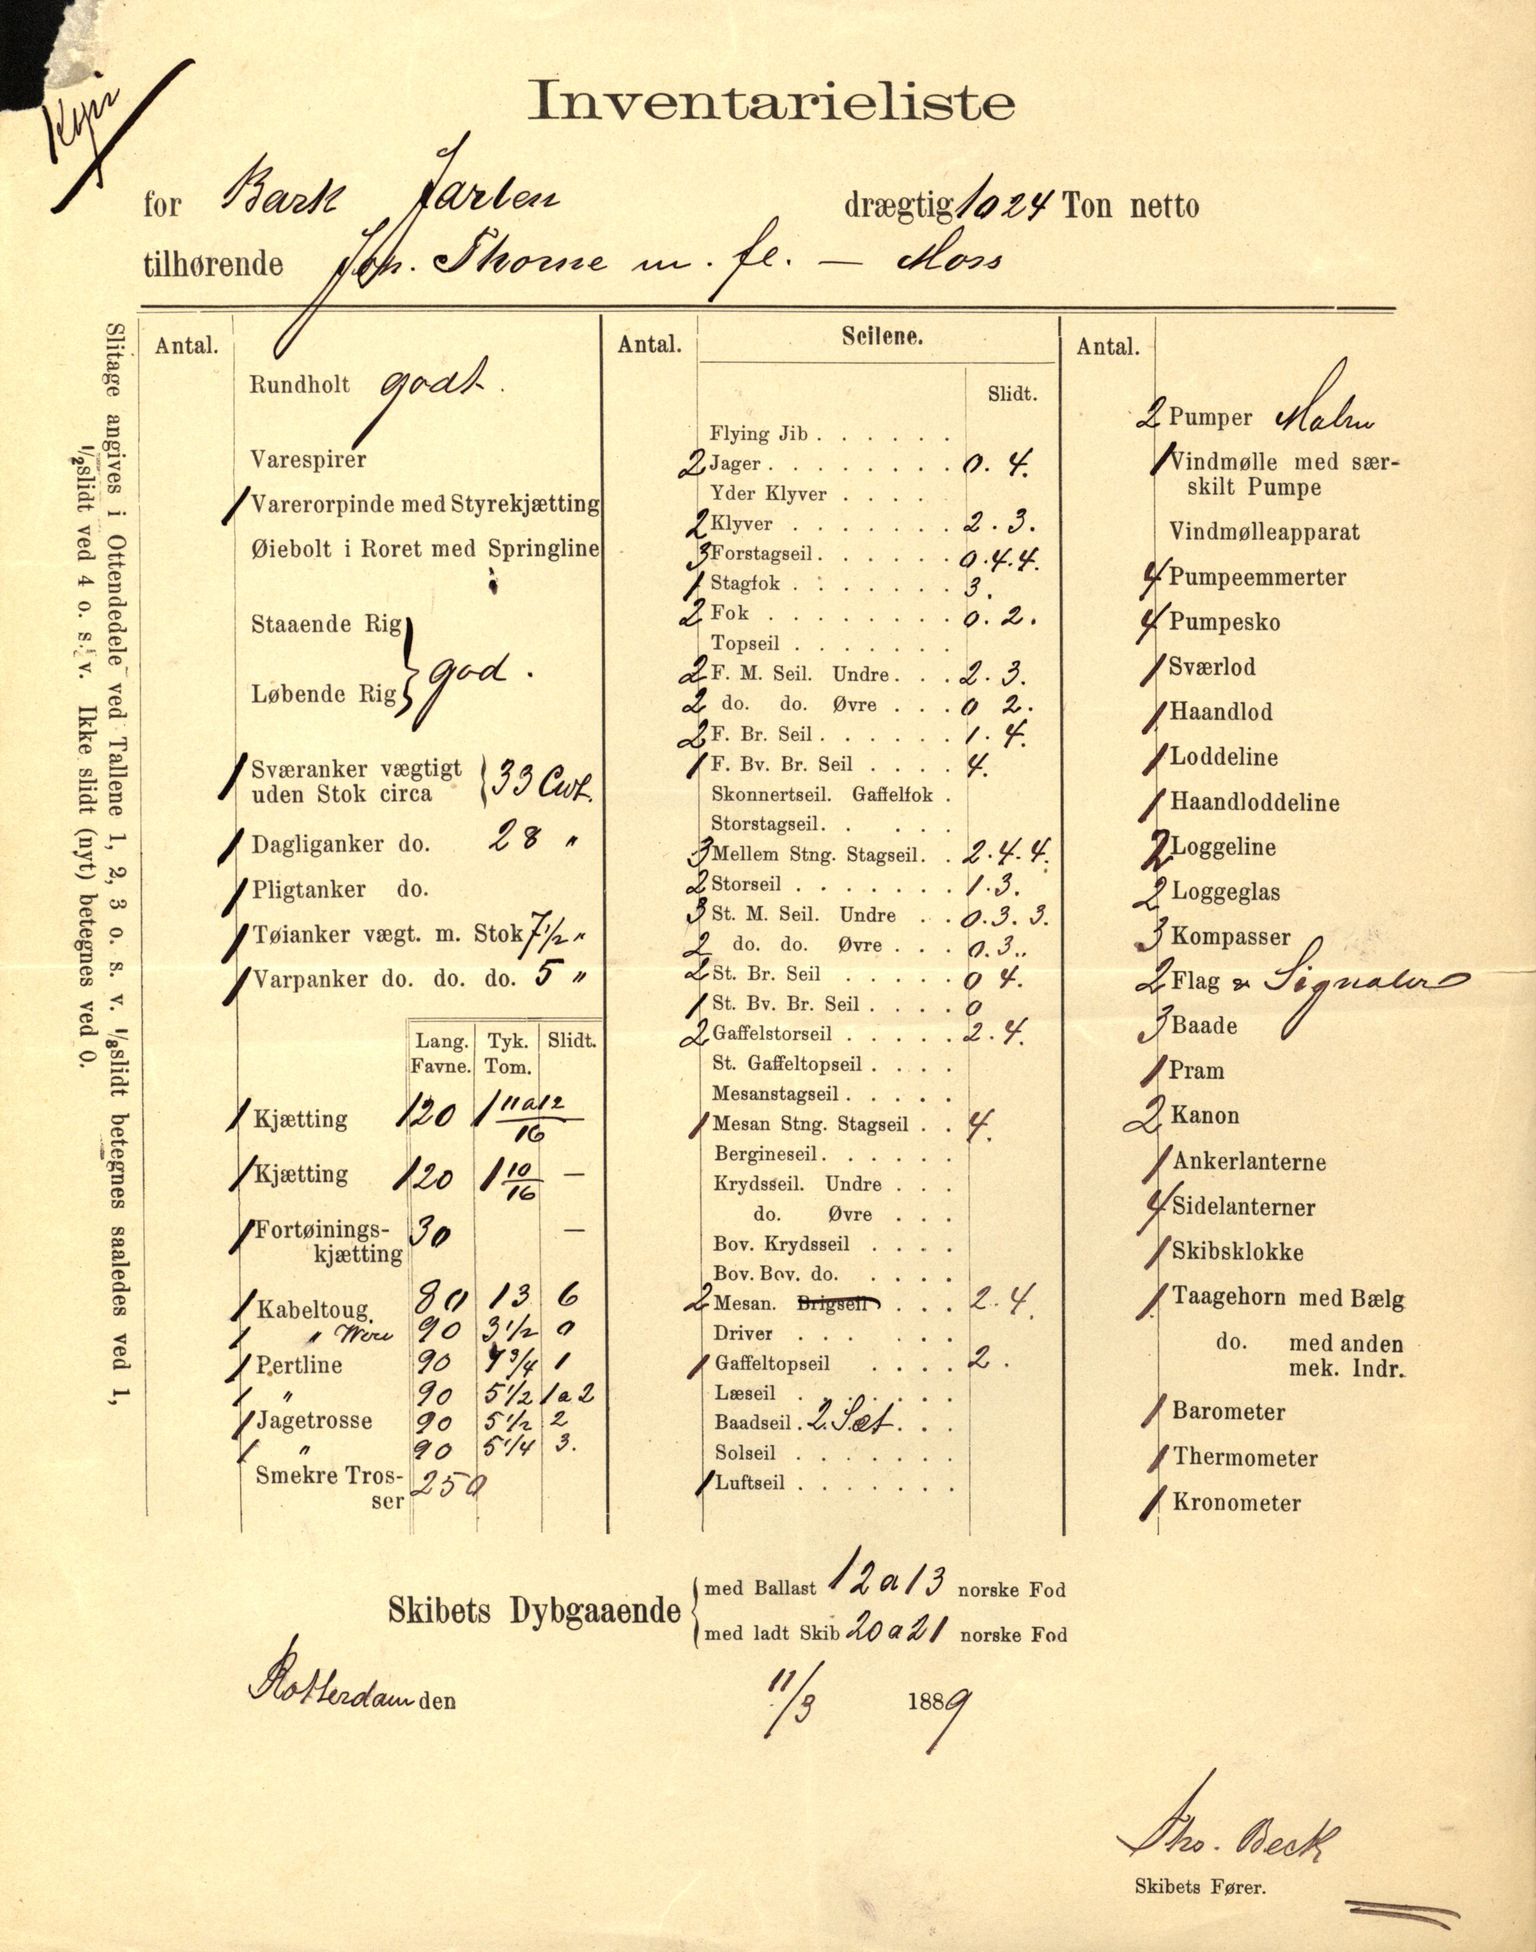 Kopi
Inventarieliste
for Bark Jarlen drægtig 1024 Ton netto
tilhørende Joh. Thorne m. fl. — Moss
Slitage angives i Ottendedele ved Tallene 1, 2, 3 o. s. v. 1/8 slidt betegnes saaledes ved 1,
1/2 slidt ved 4 o. s. v. Ikke slidt (nyt) betegnes ved 0.
Antal.
Rundholt godt.
Varespirer
1 Varerorpinde med Styrekjætting
Øiebolt i Roret med Springline
Staaende Rig
} god.
Løbende Rig
1 Sværanker vægtigt
uden Stok circa } 33 Cwt.
1 Dagliganker do. 28 "
1 Pligtanker do.
1 Tøianker vægt. m. Stok 7 1/2 "
1 Varpanker do. do. do. 5 "
Lang. Tyk. Slidt.
Favne. Tom.
1 Kjætting 120 1 11 a 12/16
1 Kjætting 120 1 10/16 —
1 Fortøinings-
kjætting 30 —
1 Kabeltoug 80 13 6
1 " Wire 90 3 1/2 0
1 Pertline 90 7 3/4 1
1 " 90 5 1/2 1 a 2
1 Jagetrosse 90 5 1/2 2
1 " 90 5 1/4 3.
Smekre Tros-
ser 250
Antal. Seilene.
Slidt.
Flying Jib . . . . . .
2 Jager . . . . . . . . 0. 4.
Yder Klyver . . . .
2 Klyver . . . . . . . 2. 3.
3 Forstagseil . . . . . . 0. 4. 4.
1 Stagfok . . . . . . . 3.
2 Fok . . . . . . . . 0. 2.
Topseil . . . . . . .
2 F. M. Seil. Undre . . . 2. 3.
2 do. do. Øvre . . . 0 2.
2 F. Br. Seil . . . . . . 1. 4.
1 F. Bv. Br. Seil . . . . 4.
Skonnertseil. Gaffelfok .
Storstagseil . . . . .
3 Mellem Stng. Stagseil . . 2. 4. 4.
2 Storseil . . . . . . . 1. 3.
3 St. M. Seil. Undre . . 0. 3. 3.
2 do. do. Øvre . . . 0. 3.
2 St. Br. Seil . . . . . 0 4.
1 St. Bv. Br. Seil . . . . 0
2 Gaffelstorseil . . . . . 2. 4.
St. Gaffeltopseil . . . .
Mesanstagseil . . . . .
1 Mesan Stng. Stagseil . . 4.
Bergineseil . . . . . .
Krydsseil. Undre . . .
do. Øvre . . .
Bov. Krydsseil . . . .
Bov. Bov. do. . . . .
2 Mesan. Brigseil . . . 2. 4.
Driver . . . . . . .
1 Gaffeltopseil . . . . 2.
Læseil . . . . . . .
Baadseil. 2 Sæt . . .
Solseil . . . . . . .
1 Luftseil . . . . . . .
Antal.
2 Pumper Malm
1 Vindmølle med sær-
skilt Pumpe
Vindmølleapparat
4 Pumpeemmerter
4 Pumpesko
1 Sværlod
1 Haandlod
1 Loddeline
1 Haandloddeline
2 Loggeline
2 Loggeglas
3 Kompasser
2 Flag & Signaler
3 Baade
1 Pram
2 Kanon
1 Ankerlanterne
4 Sidelanterner
1 Skibsklokke
1 Taagehorn med Bælg
do. med anden
mek. Indr.
1 Barometer
1 Thermometer
1 Kronometer
Skibets Dybgaaende { med Ballast 12 a 13 norske Fod
med ladt Skib 20 a 21 norske Fod
Rotterdam den 11/3 1889
Ths. Beck
Skibets Fører.